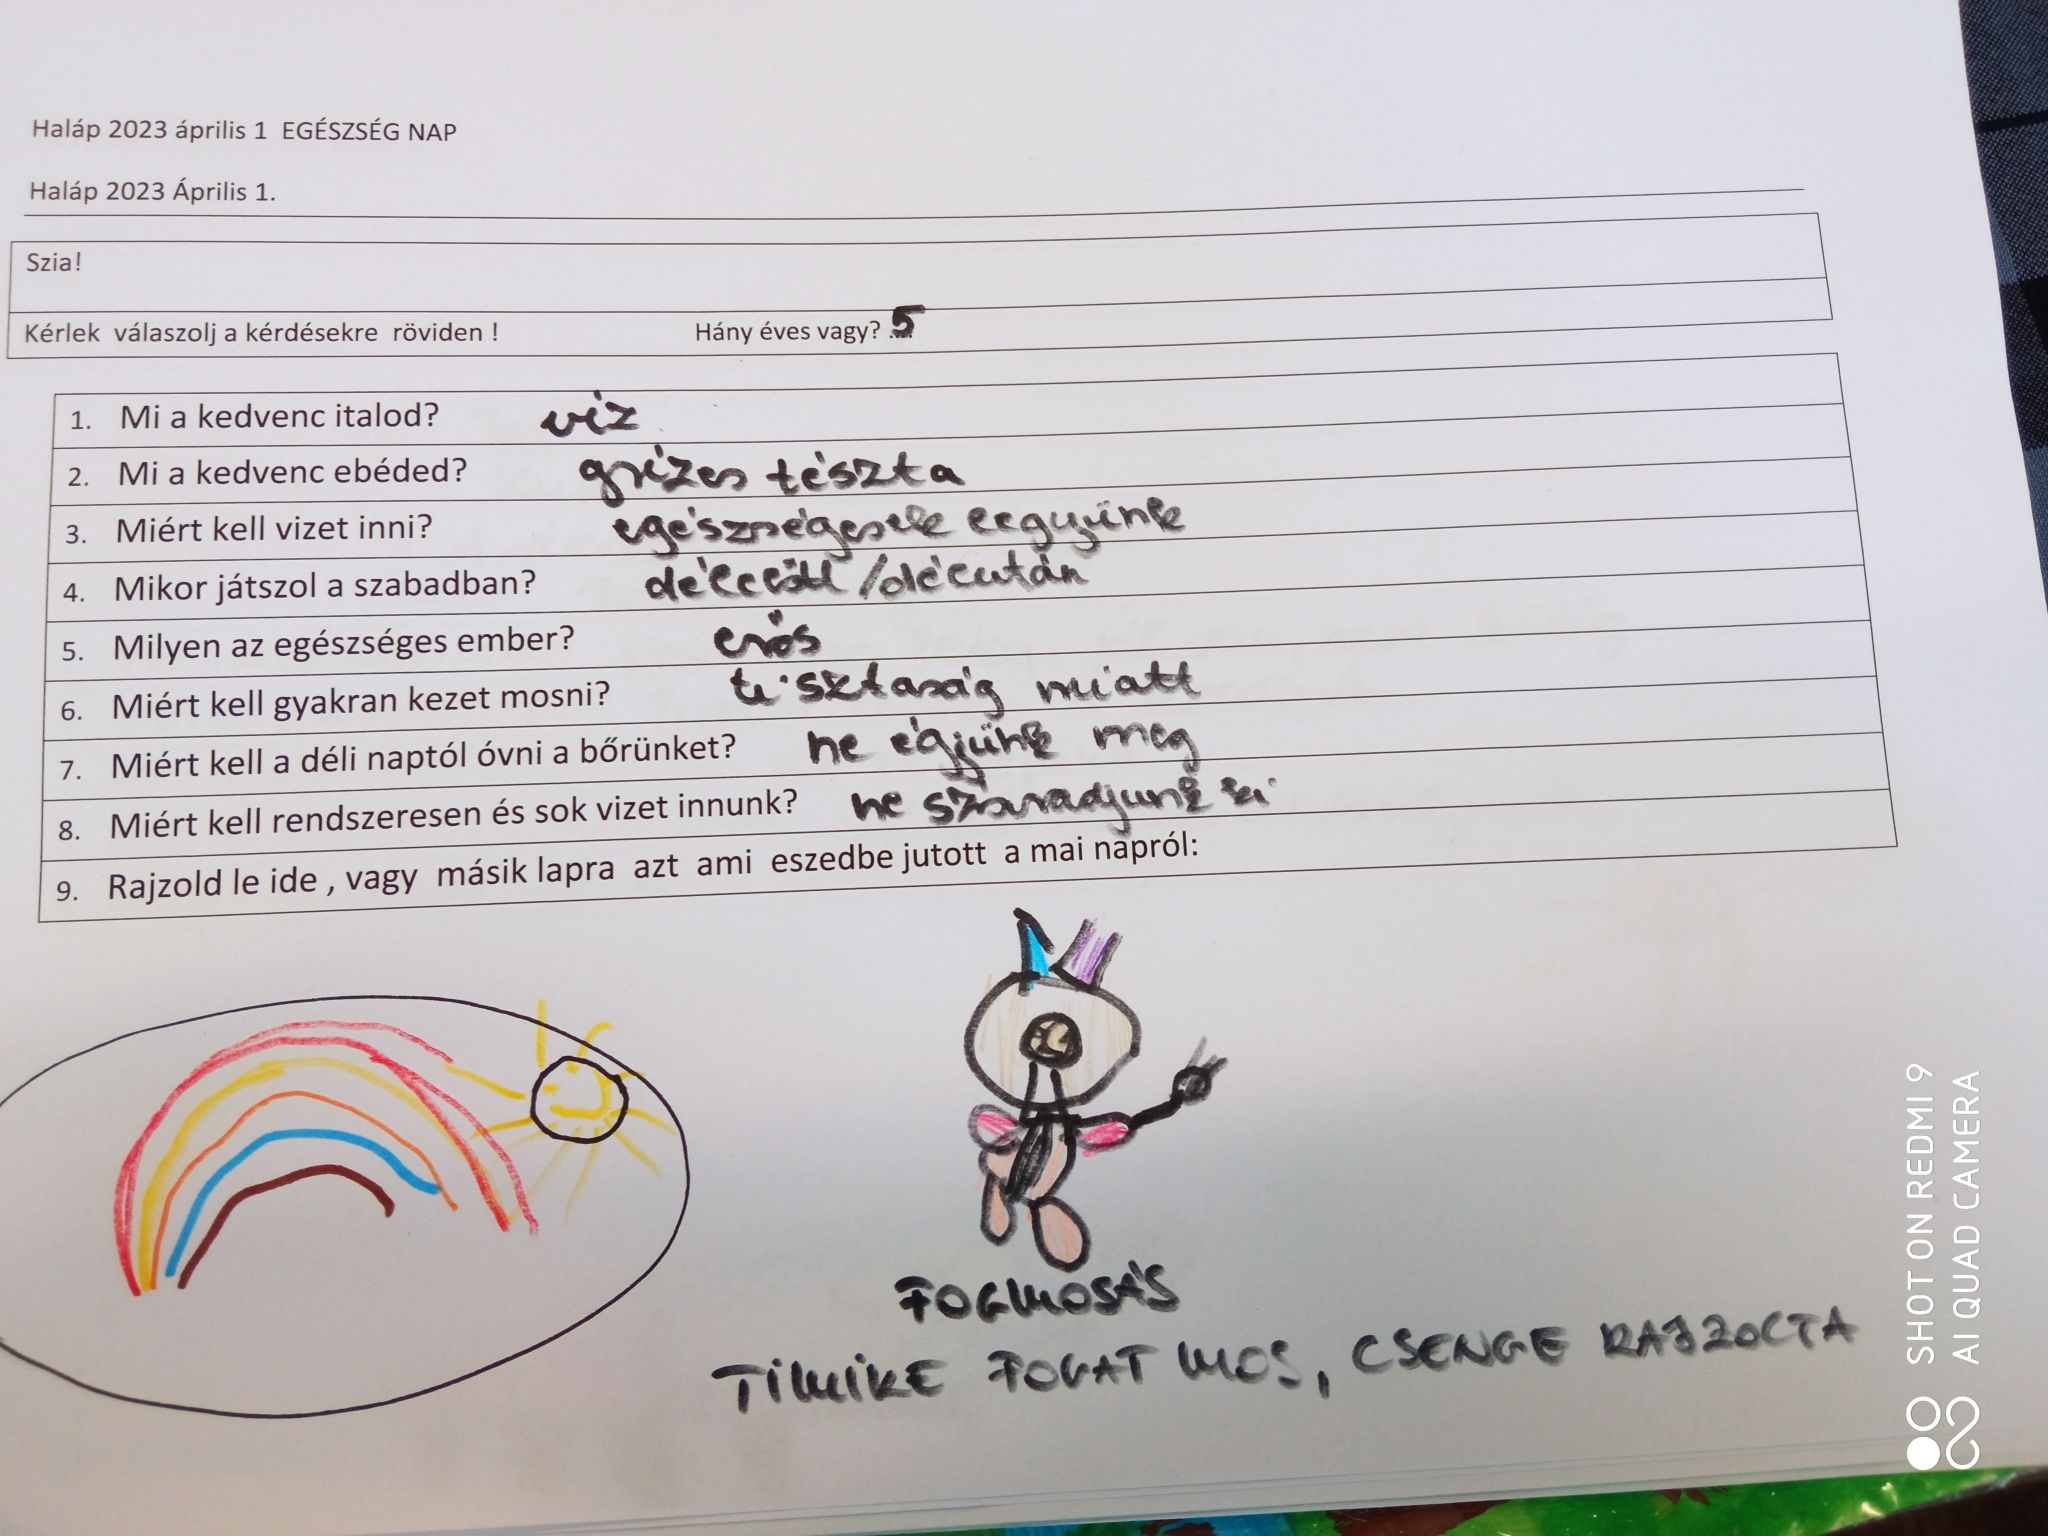 Haláp 2023 április 1 EGÉSZSÉG NAP
Haláp 2023 Április 1.
Szia!
Kérlek válaszolj a kérdésekre röviden ! Hány éves vagy? 5
1. Mi a kedvenc italod? víz
2. Mi a kedvenc ebéded? grízes tészta
3. Miért kell vizet inni? egészségesek legyünk
4. Mikor játszol a szabadban? délelőtt / délután
5. Milyen az egészséges ember? erős
6. Miért kell gyakran kezet mosni? tisztaság miatt
7. Miért kell a déli naptól óvni a bőrünket? ne égjünk meg
8. Miért kell rendszeresen és sok vizet innunk? ne száradjunk ki
9. Rajzold le ide , vagy másik lapra azt ami eszedbe jutott a mai napról:
FOGMOSÁS
TIMIKE FOGAT MOS, CSENGE RAJZOLTA
SHOT ON REDMI 9
AI QUAD CAMERA